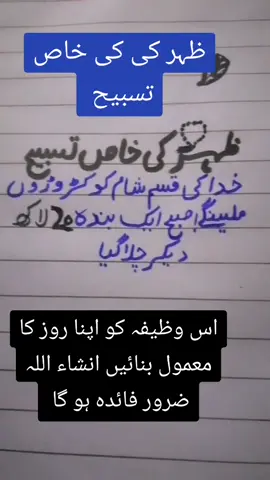 ظہر کی کی خاص
تسبیح
ظہر کی خاص تسبیح
خدا کی قسم شام کو کڑوڑوں
ملینگے صبح ایک بندہ 20 لاکھ
دیکر چلا گیا
اس وظیفہ کو اپنا روز کا
معمول بنائیں انشاء اللہ
ضرور فائدہ ہو گا